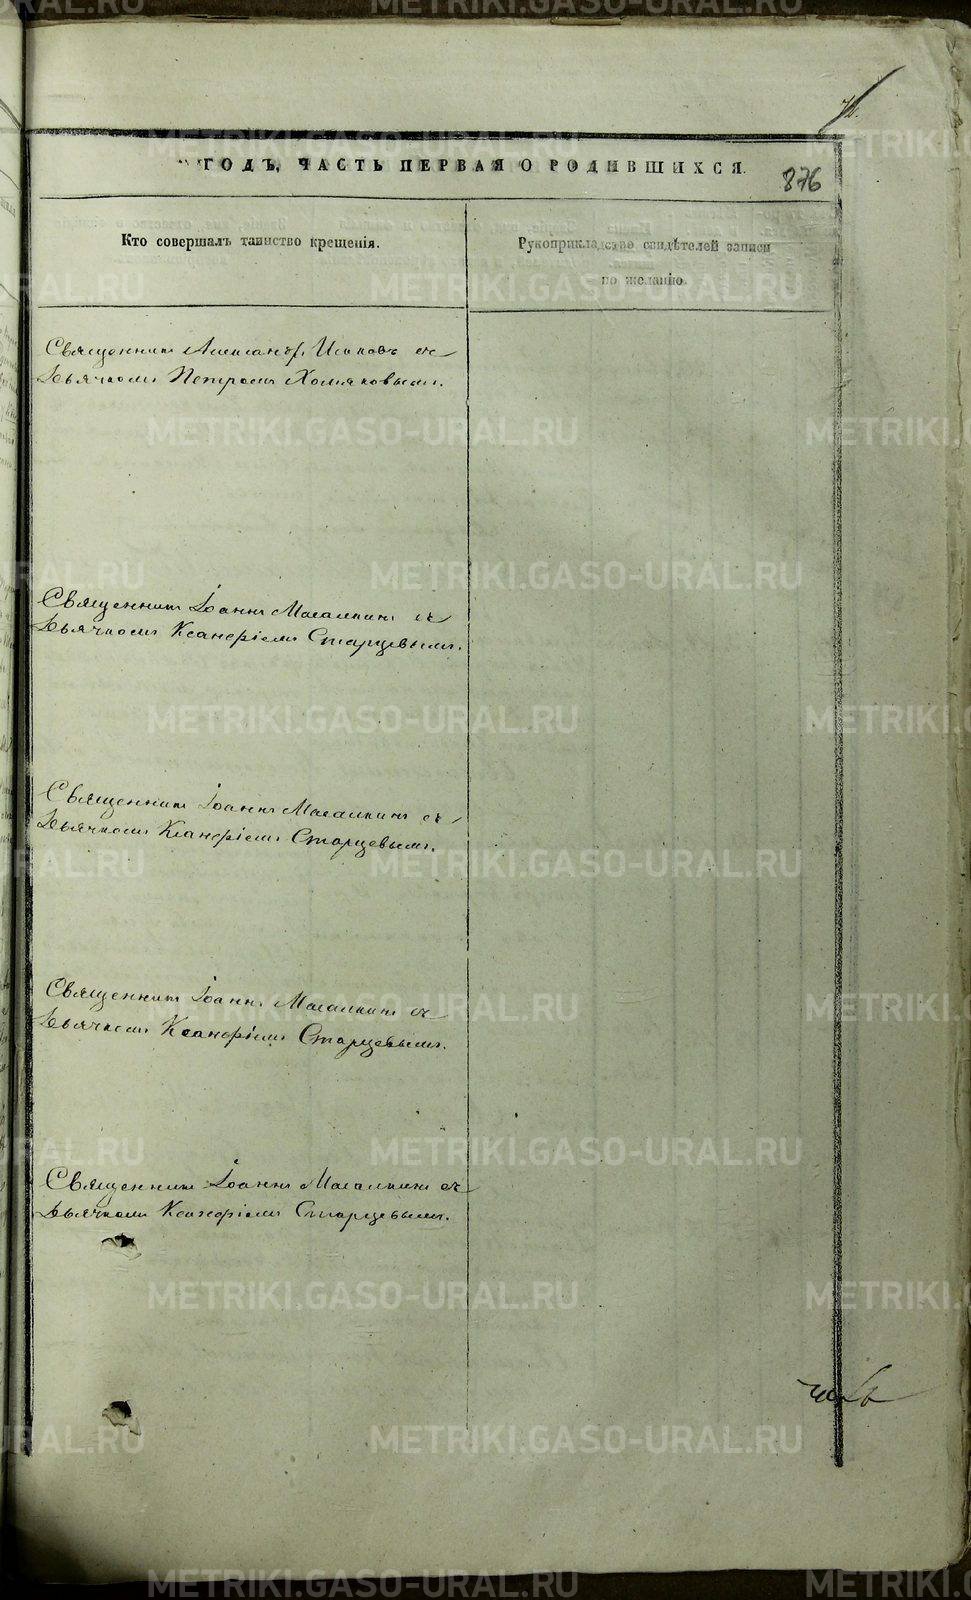 ГОДЪ, ЧАСТЬ ПЕРВАЯ О РОДИВШИХСЯ.
876
Кто совершалъ таинство крещенія.
Рукоприкладство свидѣтелей записи
по желанію.
Священникъ Александръ Исаковъ съ
Дьячкомъ Петромъ Хомяковымъ.
Священникъ Іоаннъ Масалкинъ съ
Дьячкомъ Ксанфіемъ Старцевымъ.
Священникъ Іоаннъ Масалкинъ съ
Дьячкомъ Ксанфіемъ Старцевымъ.
Священникъ Іоаннъ Масалкинъ съ
Дьячкомъ Ксанфіемъ Старцевымъ.
Священникъ Іоаннъ Масалкинъ съ
Дьячкомъ Ксанфіемъ Старцевымъ.
METRIKI.GASO-URAL.RU